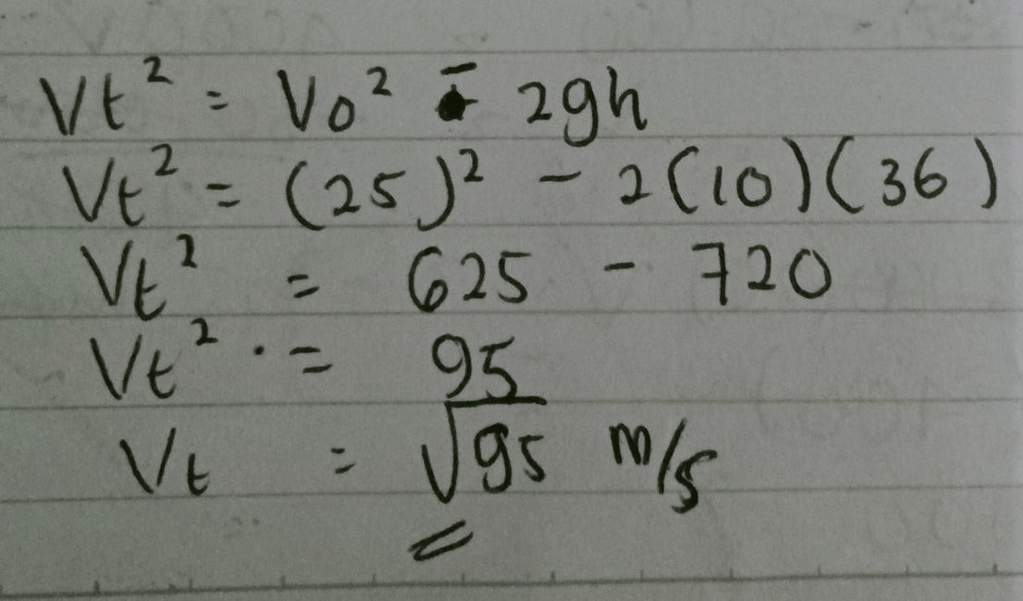 Vt² = Vo² - 2gh
Vt² = (25)² - 2(10)(36)
Vt² = 625 - 720
Vt² = 95
Vt = √95 m/s